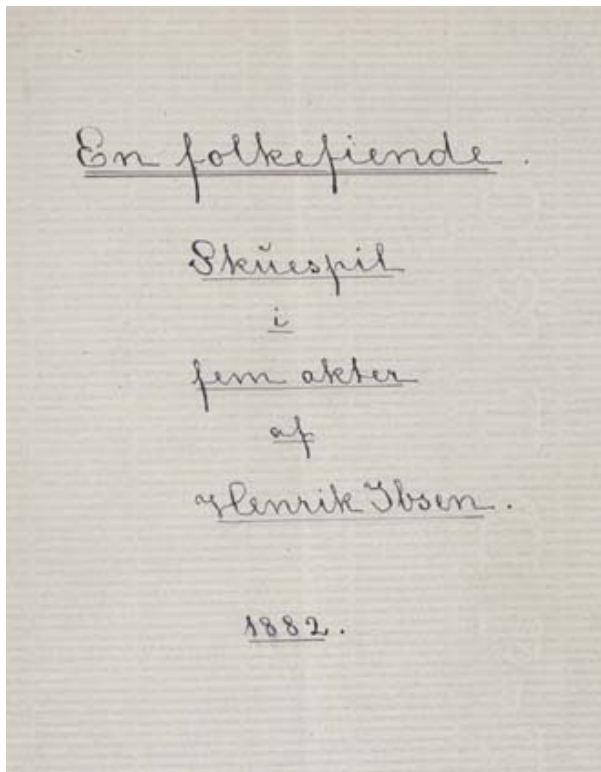 En folkefiende.
Skŭespil
i
fem akter
af
Henrik Ibsen.
1882.